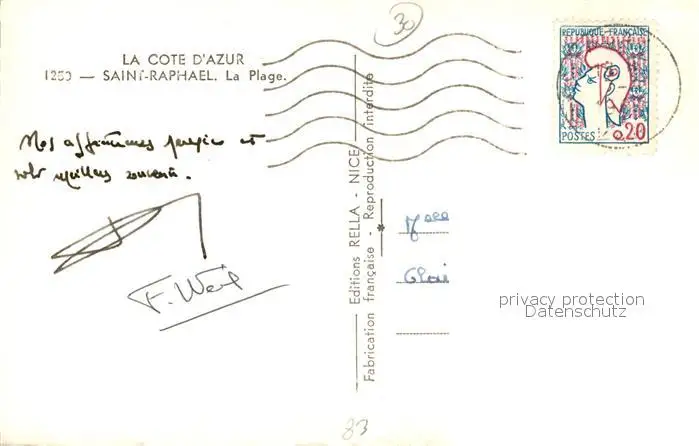 30
LA COTE D'AZUR
1250 — SAINT-RAPHAEL. La Plage.
REPUBLIQUE-FRANÇAISE
POSTES 0,20
Nos affectueuses pensées et
meilleurs souvenirs.
F. Weil
Editions RELLA - NICE
Fabrication française - Reproduction interdite
Melle
privacy protection
Datenschutz
83